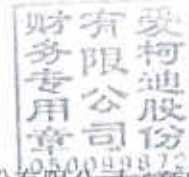 爱柯迪股份
有限公司
财务专用章